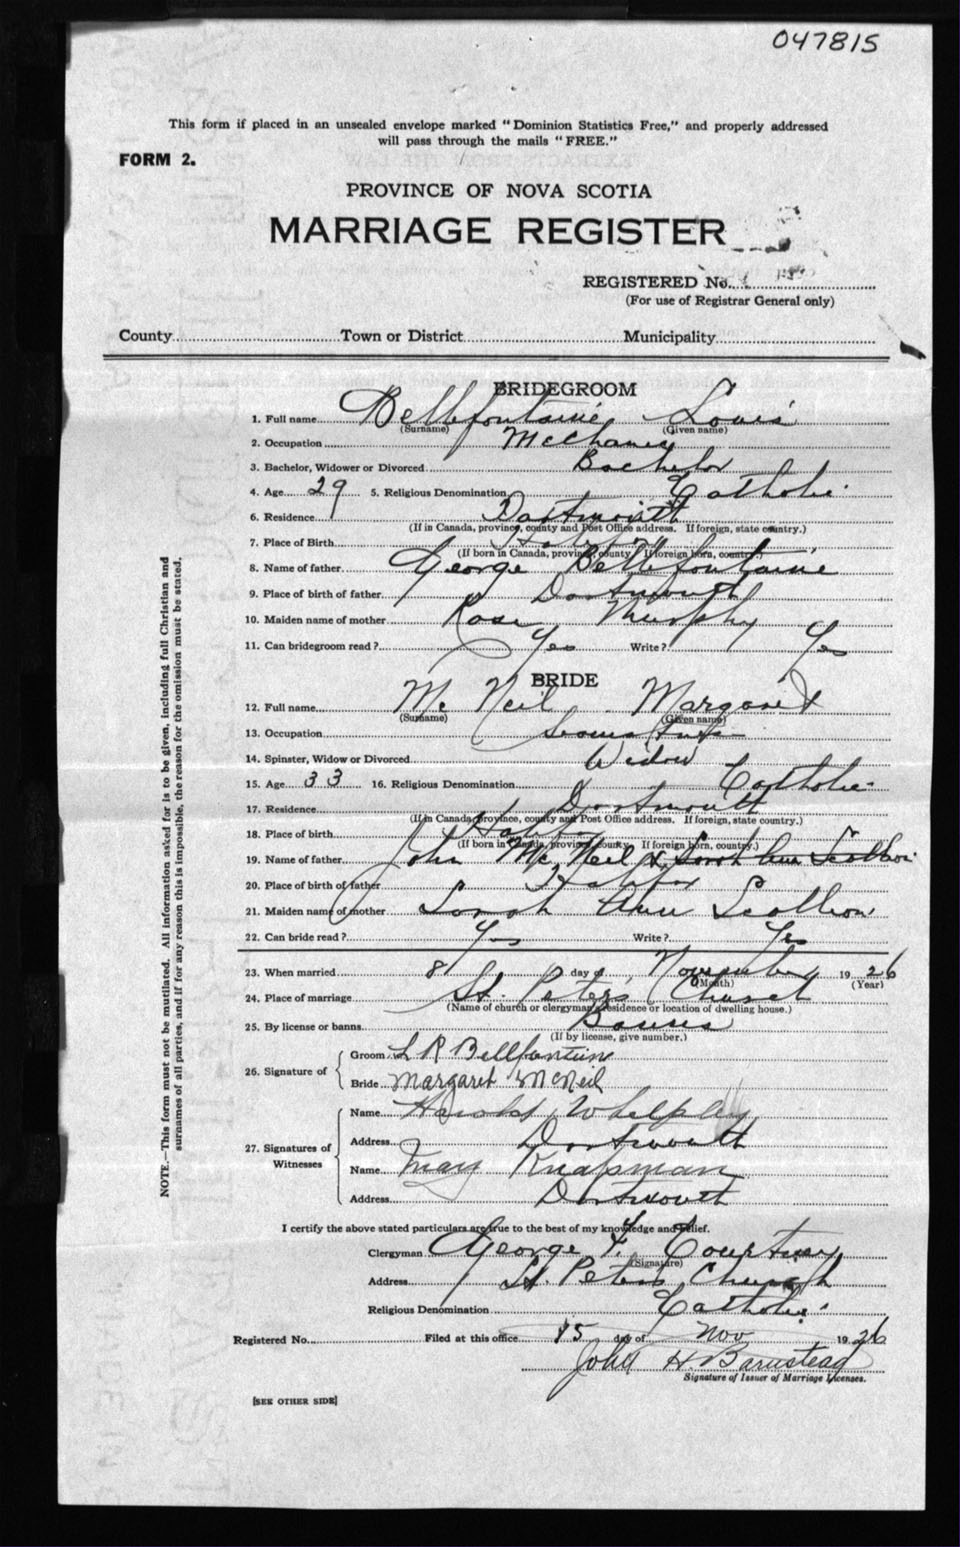 047815
This form if placed in an unsealed envelope marked "Dominion Statistics Free," and properly addressed
will pass through the mails "FREE."
FORM 2.
PROVINCE OF NOVA SCOTIA
MARRIAGE REGISTER
REGISTERED No.
(For use of Registrar General only)
County Town or District Municipality
BRIDEGROOM
1. Full name Bellefontaine Louis
(Surname) (Given name)
2. Occupation Mechanic
3. Bachelor, Widower or Divorced Bachelor
4. Age 29 5. Religious Denomination Catholic
6. Residence Dartmouth
(If in Canada, province, county and Post Office address. If foreign, state country.)
7. Place of Birth Halifax
(If born in Canada, province, county If foreign born, country.)
8. Name of father George Bellefontaine
9. Place of birth of father Dartmouth
10. Maiden name of mother Rose Murphy
11. Can bridegroom read? Yes Write? Yes
BRIDE
12. Full name Mc Neil Margaret
(Surname) (Given name)
13. Occupation
14. Spinster, Widow or Divorced Widow
15. Age 33 16. Religious Denomination Catholic
17. Residence Dartmouth
(If in Canada, province, county and Post Office address. If foreign, state country.)
18. Place of birth Halifax
(If born in Canada, province, county. If foreign born, country.)
19. Name of father John Mc Neil & Sarah Ann
20. Place of birth of father Halifax
21. Maiden name of mother Sarah Ann
22. Can bride read? Yes Write? Yes
23. When married 8 day of November 1926
(Month) (Year)
24. Place of marriage St. Peters Church
(Name of church or clergyman, residence or location of dwelling house.)
25. By license or banns Banns
(If by license, give number.)
26. Signature of
Groom L R Bellfontein
Bride Margaret McNeil
27. Signatures of Witnesses
Name Harold Whelpley
Address Dartmouth
Name Mary Knapman
Address Dartmouth
I certify the above stated particulars are true to the best of my knowledge and belief.
Clergyman George F. Courtney
(Signature)
Address St. Peters Church
Religious Denomination Catholic
Registered No. Filed at this office 15 day of Nov 1926
John H. Barnstead
Signature of Issuer of Marriage Licenses.
[SEE OTHER SIDE]
NOTE.—This form must not be mutilated. All information asked for is to be given, including full Christian and
surnames of all parties, and if for any reason this is impossible, the reason for the omission must be stated.